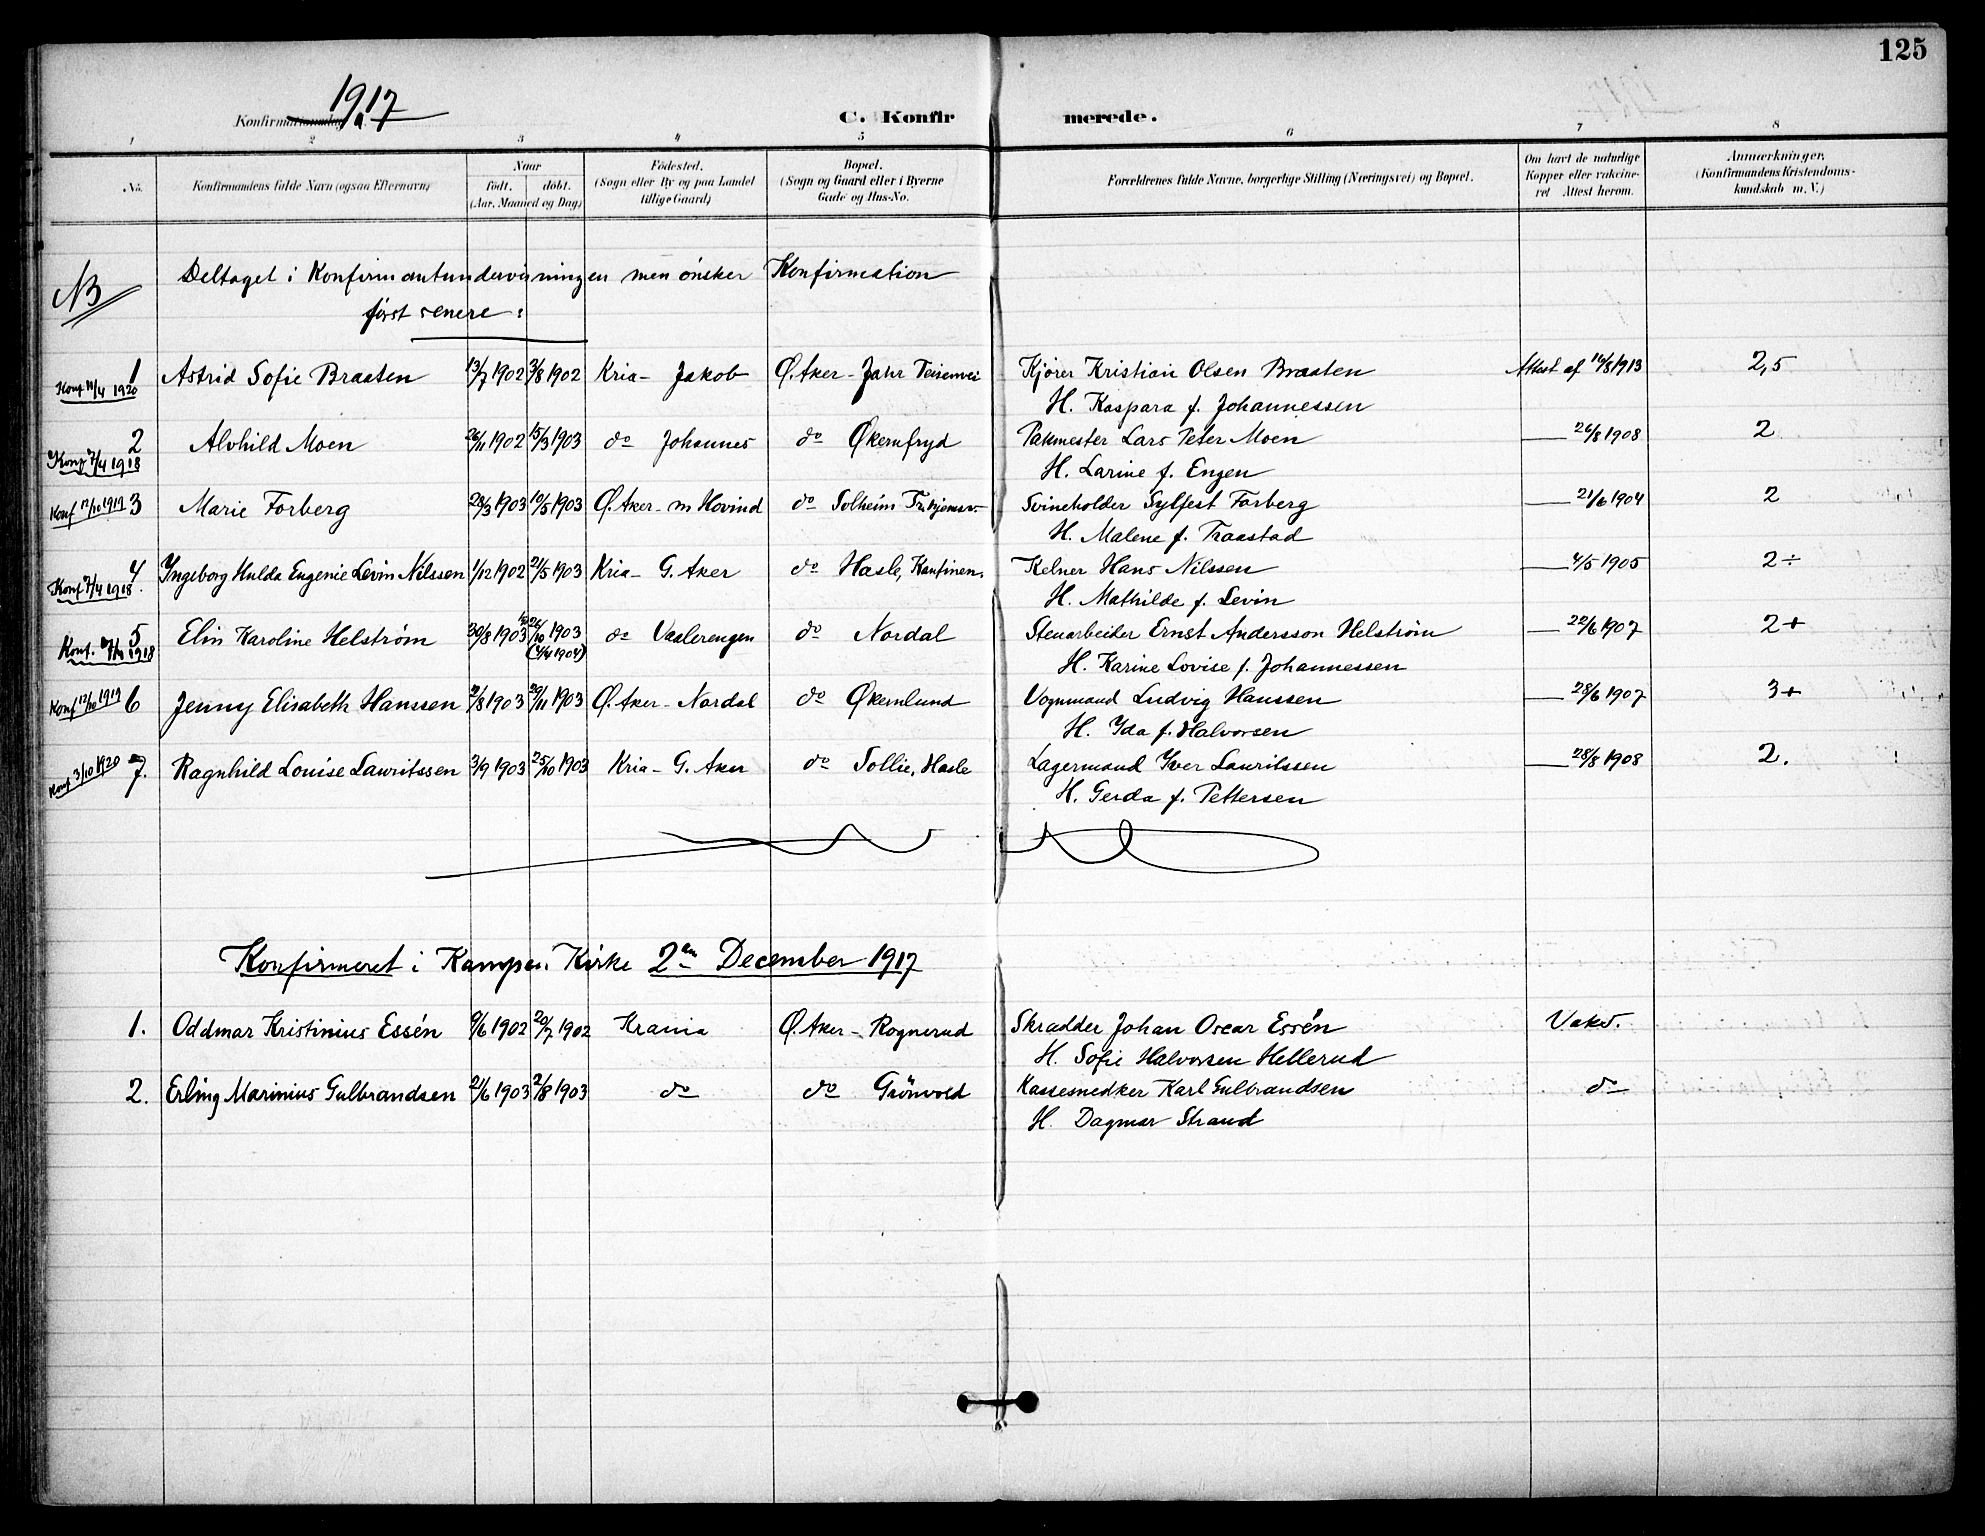 125
1917
Konfirmationsdag
C. Konfirmerede.
1 2 3 4 5 6 7 8
No. Konfirmandens fulde Navn (ogsaa Efternavn) Naar født. døbt. (Aar, Maaned og Dag) Fødested. (Sogn eller By og paa Landet tillige Gaard) Bopæl. (Sogn og Gaard eller i Byerne Gade og Hus-No. Forældrenes fulde Navne, borgerlige Stilling (Næringsvei) og Bopæl. Om havt de naturlige Kopper eller vakcineret Attest herom. Anmærkninger, (Konfirmandens Kristendomskundskab m. V.)
NB Deltaget i Konfirmantundervisningen men ønsker Konfirmation
først senere:
1 Astrid Sofie Braaten 13/7 1902 3/8 1902 Kria - Jakob Ø. Aker - Jahr Teisenvei Kjører Kristian Olsen Braaten Attest af 16/8 1913 2,5
Konf 11/4 1920 H. Kaspara f. Johannessen
2 Alvhild Moen 26/11 1902 15/3 1903 do Johannes do Økernfryd Pakmester Lars Peter Moen — 26/8 1908 2
Konf 7/4 1918 H. Larine f. Engen
Konf 12/10 1919 3 Marie Forberg 28/3 1903 10/5 1903 Ø. Aker - m Hovind do Solheim Svineholder Sylfest Forberg — 21/6 1904 2
H. Malene f. Traastad
4 Yngeborg Hulda Eugenie Levin Nilssen 1/12 1902 21/5 1903 Kria - G. Aker do Hasle, Kantinen. Kelner Hans Nilssen — 4/5 1905 2÷
Konf 7/4 1918. H. Mathilde f. Levin
5 Elin Karoline Helstrøm 30/8 1903 1903 do Vaalerengen do Nordal Stenarbeider Ernst Andersson Helstrøm — 22/6 1907 2+
Konf. 1918 (4/4 1904) H. Karine Lovise f. Johannessen
Konf 12/10 1919 6 Jenny Elisabeth Hanssen 2/8 1903 29/11 1903 Ø. Aker - Nordal do Økernlund Vognmand Ludvig Hanssen — 28/6 1907 3+
H. Yda f. Halvorsen
Konf 3/10 1920 7. Ragnhild Louise Lauritssen 3/9 1903 25/10 1903 Kria - G. Aker do Sollie, Hasle Lagermand Yver Lauritssen — 28/8 1908 2.
H. Gerda f. Pettersen
Konfirmeret i Kampen Kirke 2en December 1917
1. Oddmar Kristinius Essén 9/6 1902 20/7 1902 Krania Ø. Aker - Rognerud Skrædder Johan Oscar Essén Vakc.
H. Sofie Halvorsen Hellerud
2. Erling Marinius Gulbrandsen 21/6 1903 2/8 1903 do do Grönvold Kassesnedker Karl Gulbrandsen do
H. Dagmar Strand